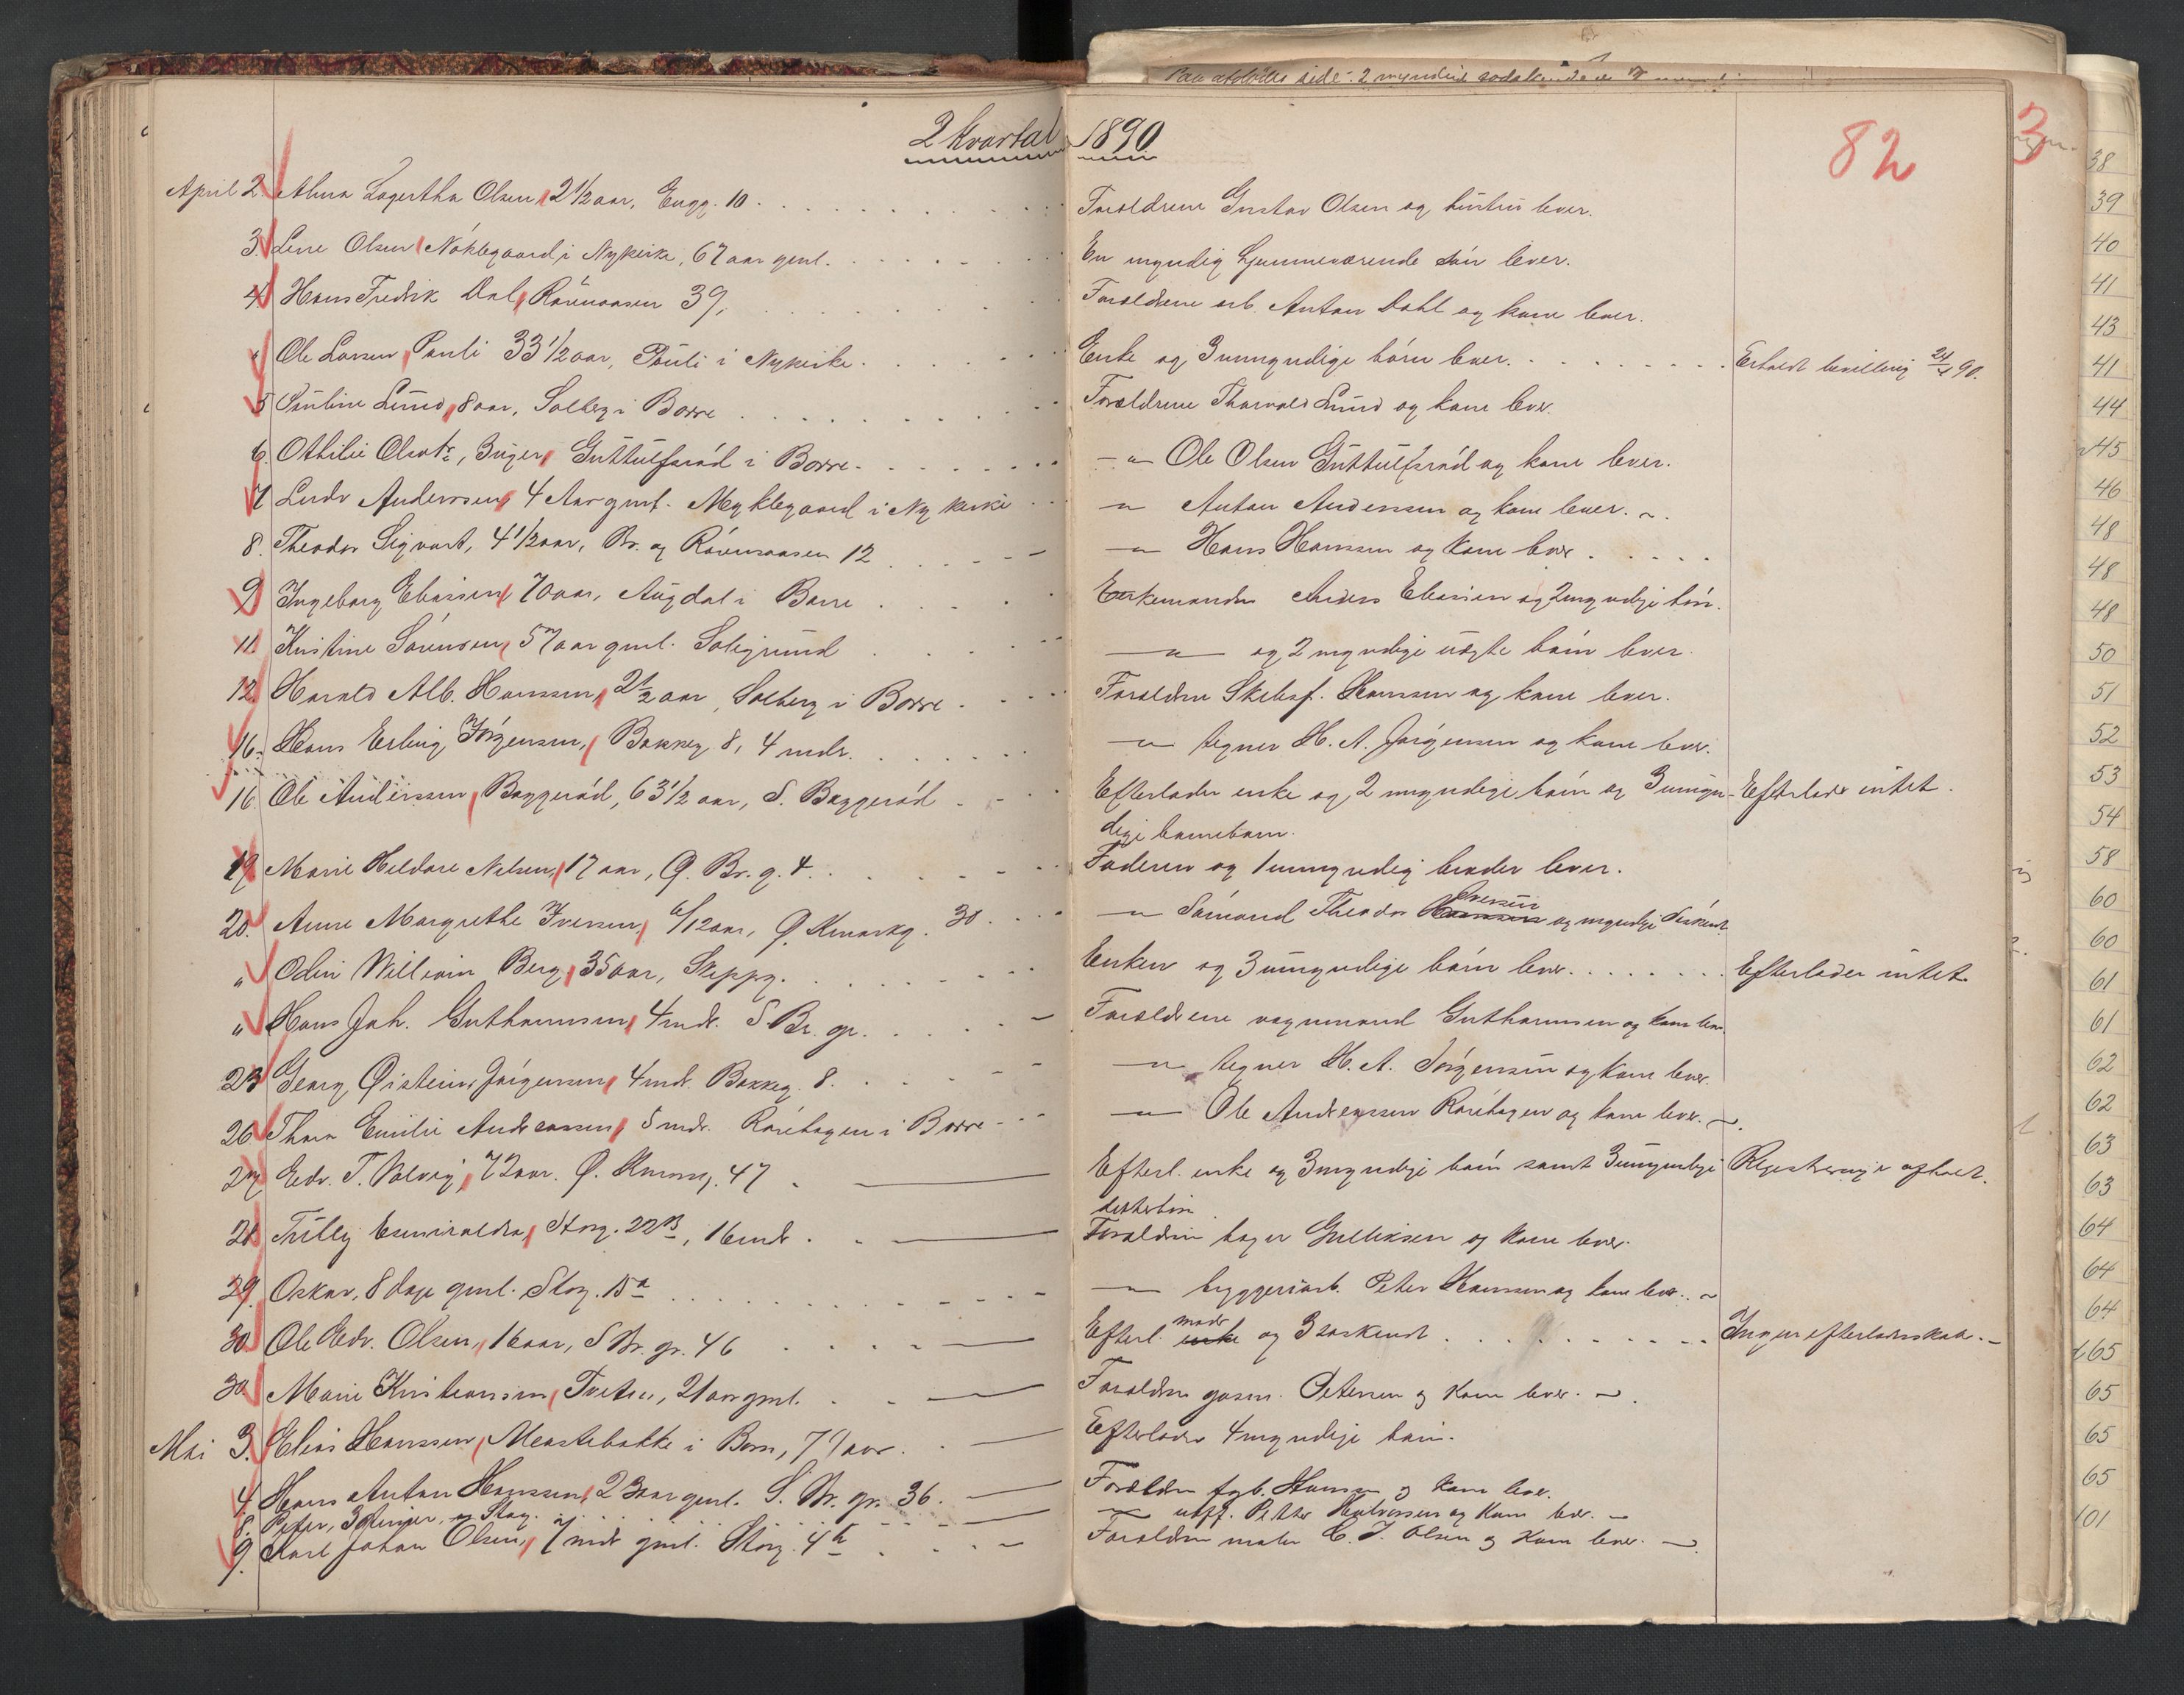 2 Kvartal 1890
82
3
April 2. Alma Lagertha Olsen, 2 1/2 aar, Engg. 10 . . . Forældrene Gustav Olsen og hustru lever.
3. Lene Olsen Nöklegaard i Nykirke, 67 aar gml. . . . En myndig hjemmeværende sön lever.
4 Hans Fredrik Dal, Rörumaasen 39, . . . Forældrene arb. Anton Dahl og kone lever.
" Ole Larsen Pauli 33 1/2 aar, Pauli i Nykirke . . . Enke og 3 umyndige börn lever. . . . Erholdt bevilling 24/4 90.
5 Pauline Lund, 8 aar, Solberg i Borre . . . Forældrene Thorvald Lund og kone lever.
6. Othilie Olsdtr, 3 uger, Guttulfsröd i Borre . . . - " - Ole Olsen Guttulfsröd og kone lever.
7 Ludv Anderssen, 4 Aar gml. Myklegaard i Nykirke . . . - " - Anton Anderssen og kone lever.
8. Theodor Sigvart, 4 1/2 aar, Br. og Rörumaasen 12 . . . - " - Hans Hanssen og kone lever . . .
9 Ingeborg Eliassen, 70 aar, Augdal i Borre . . . Enkemanden Anders Eliassen og 2 myndige börn.
11. Kristine Sörensen, 57 aar gml. Soligrund . . . - " - og 2 myndige uægte börn lever.
12. Harald Alb. Hanssen, 2 1/2 aar, Solberg i Borre . . . Forældrene Skibsf. Hanssen og kone lever.
16. Hans Erling Jörgensen, Bakkeg. 8, 4 mdr. . . . - " - tegner H. A. Jörgensen og kone lever.
16. Ole Anderssen, Baggeröd, 63 1/2 aar, S. Baggeröd . . . Efterlader enke og 2 myndige börn og 3 umyn- Efterlader intet.
dige barnebarn.
19. Marie Heldore Nilsen, 17 aar, Ø. Br. g. 4. . . . Faderen og 1 umyndig broder lever.
20. Anne Margrethe Iversen, 6/12 aar, Ø. Kmarkg. 30 . . . - " - Sömand Theodor Iversen og myndige söskend.
" Odin William Berg, 35 aar, Skippg. . . . Enken og 3 umyndige börn lever . . . Efterlader intet.
" Hans Joh. Guthormsen, 4 mdr. S. Br. gr. . . . Forældrene vognmand Guthormsen og kone lever.
23 Georg Øistein Jörgensen, 4 mdr. Bakkeg. 8. . . . - " - tegner H. A. Jörgensen og kone lever.
26 Thora Emilie Andreassen, 5 mdr. Rörehagen i Borre . . . - " - Ole Andreassen Rörehagen og kone lever.
27 Edv. T. Solvig, 72 aar. Ø. Kmarkg. 47 . . . Efterl. enke og 3 myndige börn samt 3 umyndige Registrering afholdt.
datterbörn
28 Tully Esmiralda, Storg. 22 B, 16 mdr . . . Forældrene bager Gulliksen og kone lever.
29. Oskar, 8 dage gml. Storg. 15 a . . . - " - bryggeriarb. Peter Hanssen og kone lever.
30. Ole Edv. Olsen, 16 aar, S Br. gr. 46 . . . Efterl. enke moder og 3 söskend . . . Ingen efterladenskab.
30 Marie Kristiansen, Tveten, 21 aar gml. . . . Forældrene gaarm. Petersen og kone lever.
Mai 3. Elias Hanssen, Meastebakke i Borre, 79 aar . . . Efterlader 4 myndige börn.
4 Hans Anton Hanssen, 23 aar gml. S. Br. gr. 36. . . . Forældrene fyb. Hansen og kone lever.
8. Peter, 3 timer, Storg. . . . - " - Petter Halvorsen og kone lever.
9. Karl Johan Olsen, 7 mdr gml. Storg. 4 b . . . Forældrene maler C. J. Olsen og kone lever.
38
39
40
41
43
41
44
45
46
48
48
48
50
51
52
53
54
58
60
60
61
61
62
62
63
63
64
64
64
65
65
65
65
101